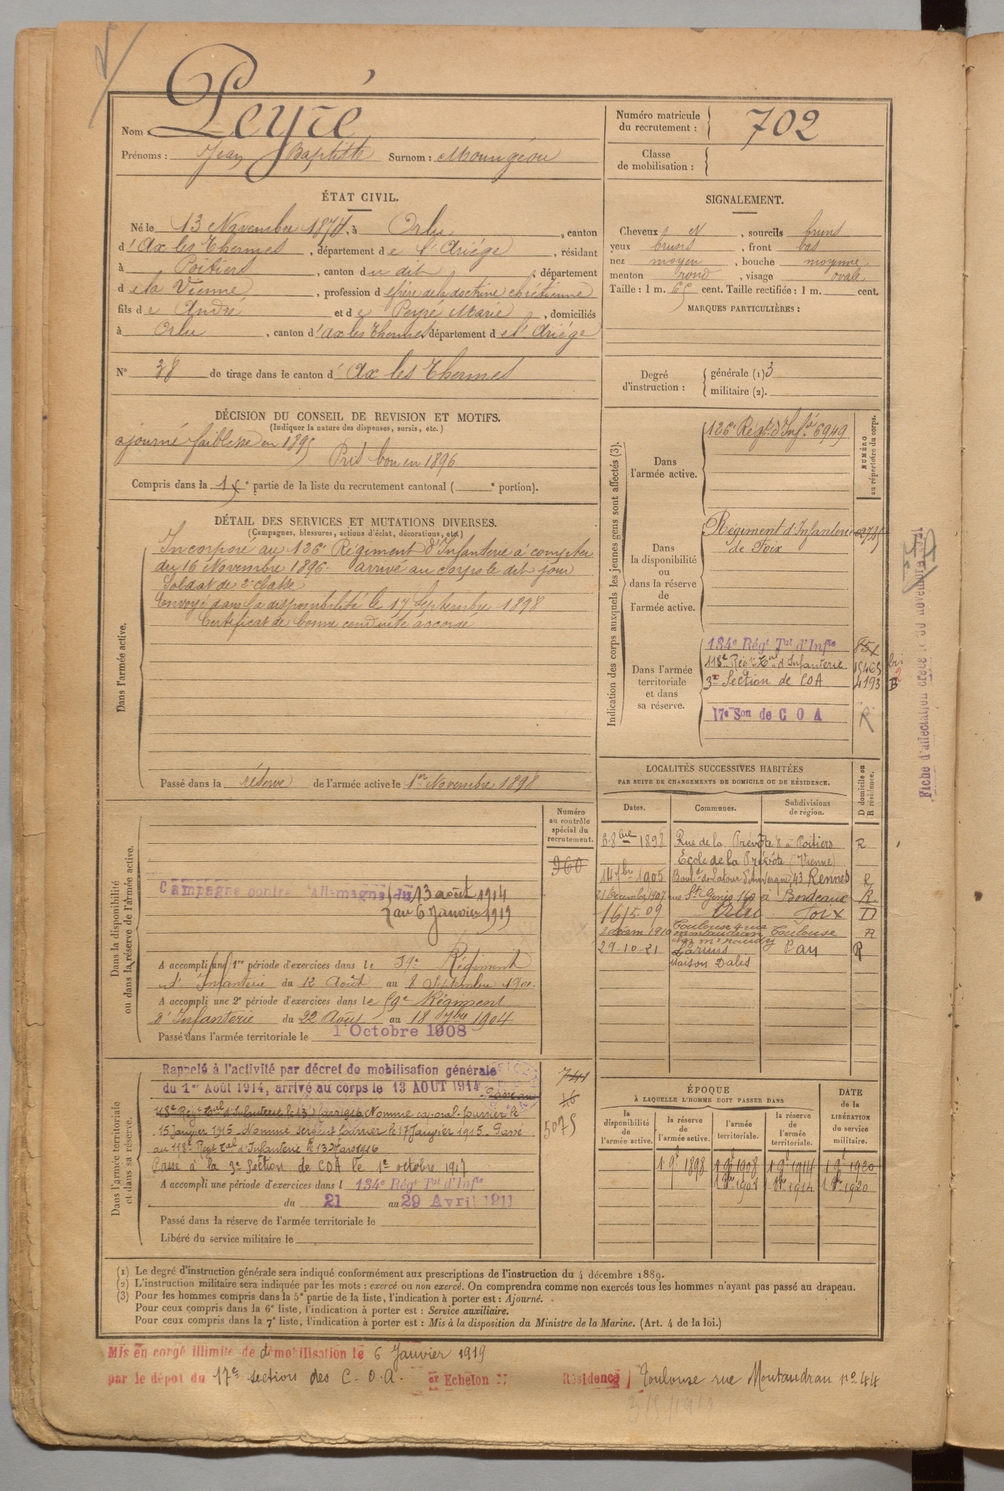 Nom : Peyré
Prénoms : Jean Baptiste Surnom : Moungéou
Numéro matricule du recrutement : 702
Classe de mobilisation :
ÉTAT CIVIL.
Né le 13 Novembre 1874, à Orlu, canton
d'Ax les Thermes, département de l'Ariége, résidant
à Poitiers, canton du dit, département
de la Vienne, profession de frère de la doctrine chrétienne
fils de André et de Peyre Marie, domiciliés
à Orlu, canton d'ax les Thermes département de l'Ariége
N° 38 de tirage dans le canton d'Ax les Thermes
SIGNALEMENT.
Cheveux N, sourcils bruns
yeux bruns, front bas
nez moyen, bouche moyenne
menton rond, visage ovale
Taille : 1 m. 65 cent. Taille rectifiée : 1 m. cent.
MARQUES PARTICULIÈRES :
Degré d'instruction :
générale (1) 3
militaire (2).
DÉCISION DU CONSEIL DE REVISION ET MOTIFS.
(Indiquer la nature des dispenses, sursis, etc.)
ajourné faiblesse en 1895
Pris bon en 1896
Compris dans la 1re partie de la liste du recrutement cantonal ( e portion).
DÉTAIL DES SERVICES ET MUTATIONS DIVERSES.
(Campagnes, blessures, actions d'éclat, décorations, etc.)
Dans l'armée active.
Incorporé au 126e Régiment d'Infanterie à compter
du 16 Novembre 1896. arrivé au corps le dit jour
Soldat de 2e classe
Envoyé dans la disponibilité le 17 Septembre 1898
Certificat de bonne conduite accordé
Passé dans la réserve de l'armée active le 1er Novembre 1898
Indication des corps auxquels les jeunes gens sont affectés (3).
NUMÉRO au répertoire du corps.
Dans l'armée active.
126e Régt d'Infie 6949
Dans la disponibilité ou dans la réserve de l'armée active.
Régiment d'Infanterie
de Foix
Dans l'armée territoriale et dans sa réserve.
134e Régt Tal d'Infie
118e Régt Tal d'Infanterie 15463
3e Section de COA 4193
17e Son de C O A R
Fiche d'affectation
LOCALITÉS SUCCESSIVES HABITÉES
PAR SUITE DE CHANGEMENTS DE DOMICILE OU DE RÉSIDENCE.
Dates. Communes. Subdivisions de région. D domicile ou R résidence.
3 8bre 1898 Rue de la Prévôté 8 à Poitiers R
Ecole de la Prévôté (Vienne)
14 7bre 1905 Boul de Latour d'Auvergne 43 Rennes R
21 Décembre 1907 rue St Genès 140 à Bordeaux R
16/5 09 Orlu Foix D
Toulouse R
29-10-21 Laruns Pau R
Maison Dalès
Dans la disponibilité ou dans la réserve de l'armée active.
Numéro au contrôle spécial du recrutement.
960
Campagne contre l'Allemagne du 13 août 1914
au 6 Janvier 1919
A accompli une 1re période d'exercices dans le 59e Régiment
d'Infanterie du 12 Août au 8 Septembre 1901.
A accompli une 2e période d'exercices dans le 59e Régiment
d'Infanterie du 22 Août au 18 7bre 1904
Passé dans l'armée territoriale le 1 Octobre 1908
Dans l'armée territoriale et dans sa réserve.
Rappelé à l'activité par décret de mobilisation générale
du 1er Août 1914, arrivé au corps le 13 AOUT 1914. Passé au
15 Janvier 1915. Nommé sergent fourrier le 17 Janvier 1915. Passé
au 118e Regt Tal d'Infanterie le 13 Mars 1916
Passé à la 3e Section de COA le 1er octobre 1917
A accompli une période d'exercices dans l 134e Régt Tal d'Infie
du 21 au 29 Avril 1911
Passé dans la réserve de l'armée territoriale le
Libéré du service militaire le
741
16
5075
ÉPOQUE
À LAQUELLE L'HOMME DOIT PASSER DANS
la disponibilité de l'armée active. la réserve de l'armée active. l'armée territoriale. la réserve de l'armée territoriale. DATE de la LIBÉRATION du service militaire.
1 9e 1898 1 9e 1908 1 9e 1914 1 9e 1920
(1) Le degré d'instruction générale sera indiqué conformément aux prescriptions de l'instruction du 4 décembre 1889.
(2) L'instruction militaire sera indiquée par les mots : exercé ou non exercé. On comprendra comme non exercés tous les hommes n'ayant pas passé au drapeau.
(3) Pour les hommes compris dans la 5e partie de la liste, l'indication à porter est : Ajourné.
Pour ceux compris dans la 6e liste, l'indication à porter est : Service auxiliaire.
Pour ceux compris dans la 7e liste, l'indication à porter est : Mis à la disposition du Ministre de la Marine. (Art. 4 de la loi.)
Mis en congé illimité de démobilisation le 6 Janvier 1919
par le dépôt du 17e section des C.O.A. Echelon Résidence Toulouse rue Montaudran no 44